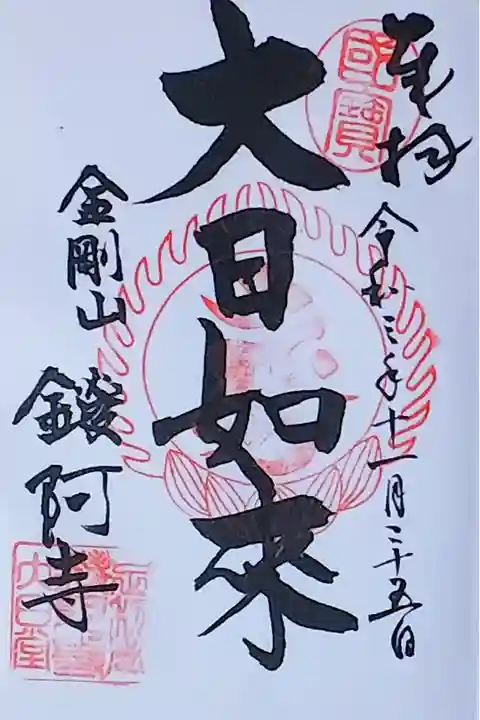 奉拝
國寳
令和三年十一月二十五日
大日如来
金剛山
鑁阿寺
大日堂